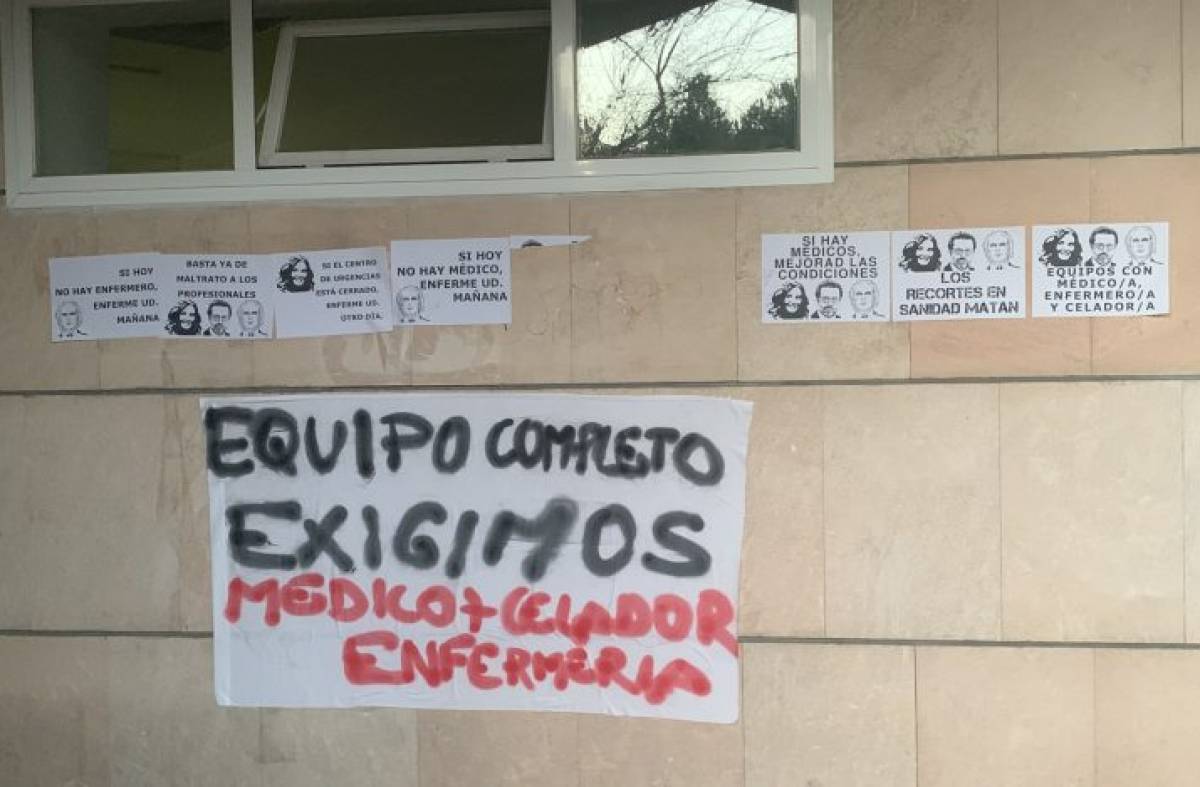 SI HOY
NO HAY ENFERMERO,
ENFERME UD.
MAÑANA
BASTA YA DE
MALTRATO A LOS
PROFESIONALES
SI EL CENTRO
DE URGENCIAS
ESTÁ CERRADO,
ENFERME UD.
OTRO DÍA.
SI HOY
NO HAY MÉDICO,
ENFERME UD.
MAÑANA
SI HAY
MÉDICOS,
MEJORAD LAS
CONDICIONES
LOS
RECORTES EN
SANIDAD MATAN
EQUIPOS CON
MÉDICO/A,
ENFERMERO/A
Y CELADOR/A
EQUIPO COMPLETO
EXIGIMOS
MÉDICO+CELADOR
ENFERMERIA